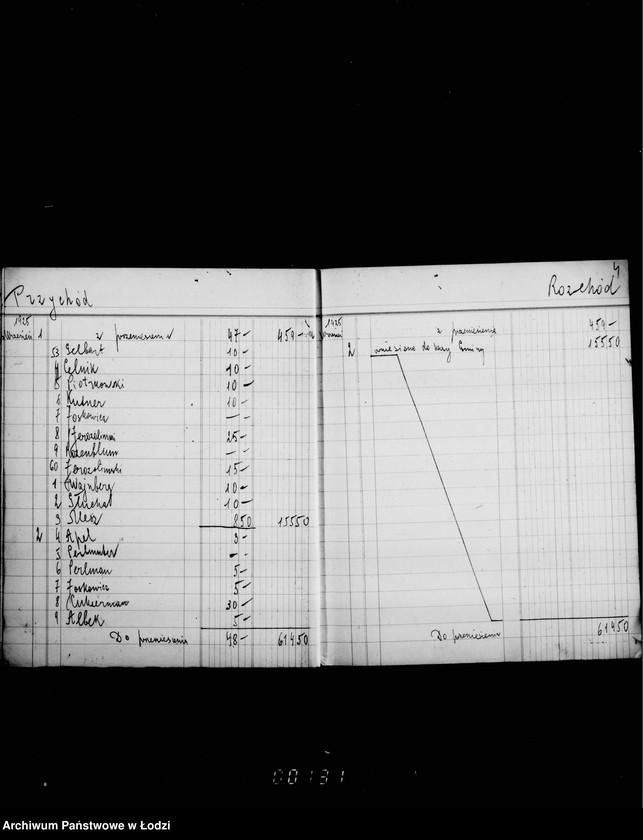 Przychód
1925
Wrzesień 1 z przeniesienia 47 – 459 –
53 Gelbart 10 –
4 Celnik 10 –
5 Piotrkowski 10 –
6 Kutner 10 –
7 Joskowicz – –
8 Jerozolimski 25 –
9 Rozenblum – –
60 Jerozolimski 15 –
1 Wajnberg 10 –
2 10 –
3 8 50 155 50
2 4 Apel 3 –
5 Perlmuter – –
6 Perlman 5 –
7 Joskowicz 5 –
8 Cukierman 30 –
9 Albek 5 –
Do przeniesienia 48 – 614 50
4
Rozchód
1925
Wrzesień z przeniesienia 459 –
2 wniesiono do kasy Gminy 155 50
Do przeniesienia 614 50
00131
Archiwum Państwowe w Łodzi